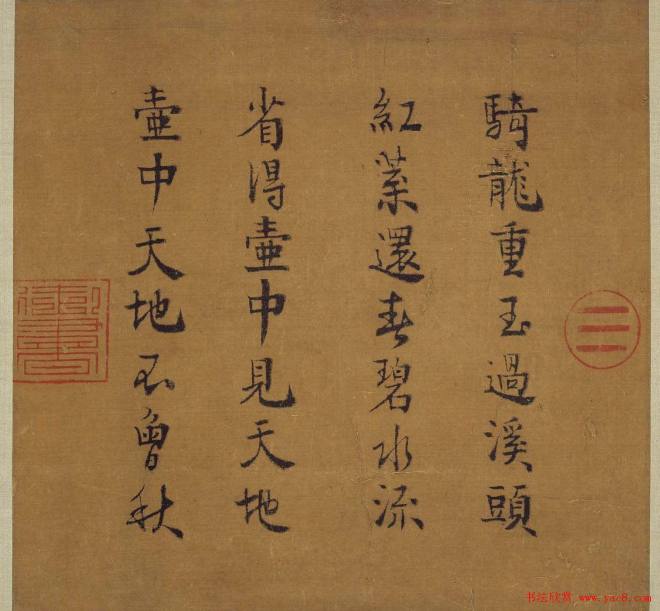 騎龍重玉過溪頭
紅葉還春碧水流
省得壺中見天地
壺中天地不曾秋
御書
書法欣赏 www.yac8.com